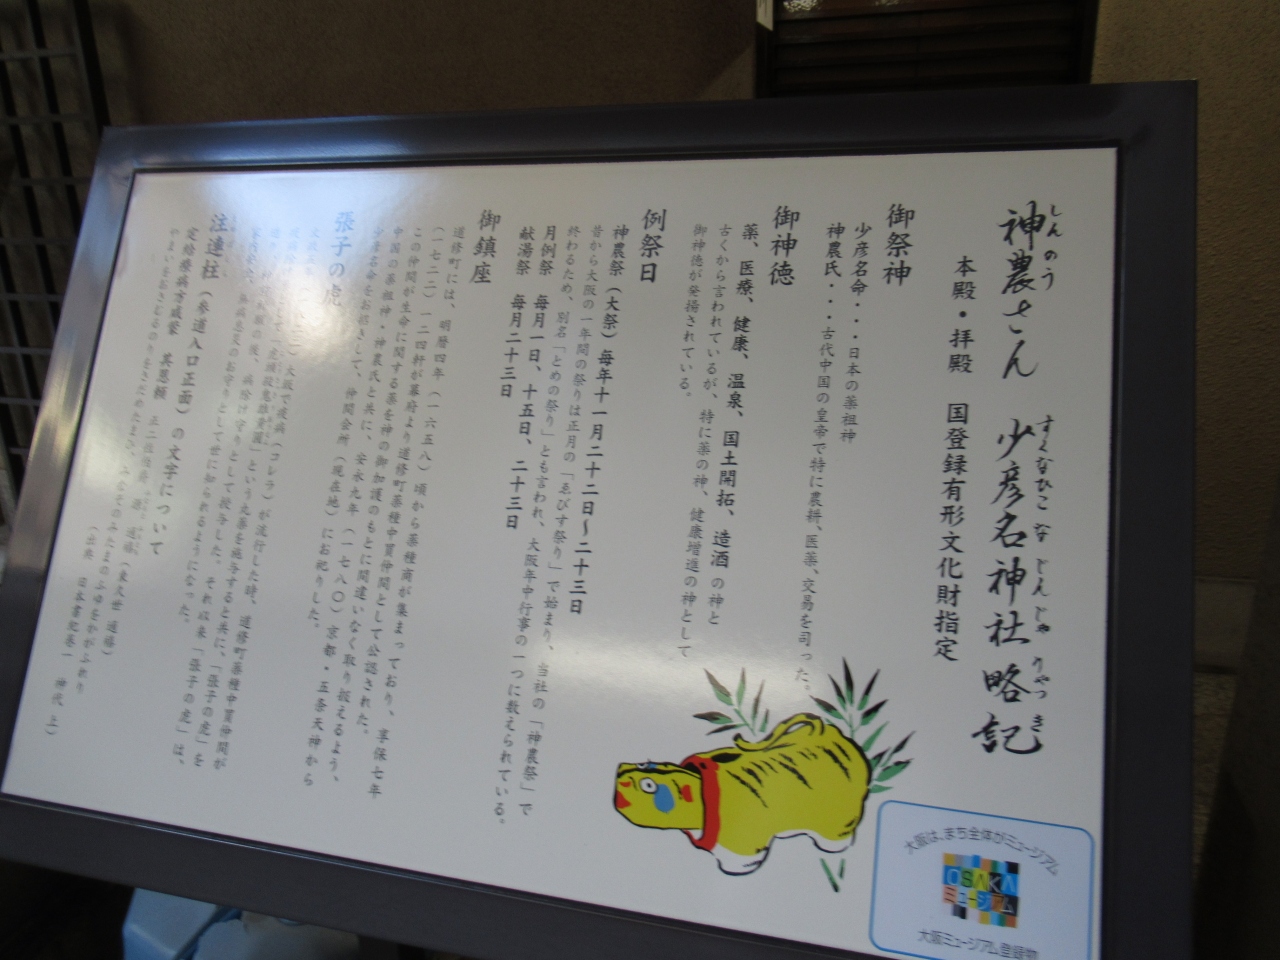 神農さん 少彦名神社略記
しんのう すくなひこなじんじゃりゃっき
本殿・拝殿 国登録有形文化財指定
御祭神
少彦名命・・・日本の薬祖神
神農氏・・・古代中国の皇帝で特に農耕、医薬、交易を司った。
御神徳
薬、医療、健康、温泉、国土開拓、造酒の神と
古くから言われているが、特に薬の神、健康増進の神として
御神徳が発揚されている。
例祭日
神農祭（大祭）毎年十一月二十二日〜二十三日
昔から大阪の一年間の祭りは正月の「ゑびす祭り」で始まり、当社の「神農祭」で
終わるため、別名「とめの祭り」とも言われ、大阪年中行事の一つに数えられている。
月例祭 毎月一日、十五日、二十三日
献湯祭 毎月二十三日
御鎮座
道修町には、明暦四年（一六五八）頃から薬種商が集まっており、享保七年
（一七二二）一二四軒が幕府より道修町薬種中買仲間として公認された。
この仲間が生命に関する薬を神の御加護のもとに間違いなく取り扱えるよう、
中国の薬祖神・神農氏と共に、安永九年（一七八〇）京都・五条天神から
少彦名命をお招きして、仲間会所（現在地）にお祀りした。
張子の虎
大阪で疫病（コレラ）が流行した時、道修町薬種中買仲間が
「虎頭殺鬼雄黄圓」という丸薬を施与すると共に、「張子の虎」を
病除け守りとして授与した。それ以来「張子の虎」は、
お守りとして世に知られるようになった。
注連柱（参道入口正面）の文字について
定給療病方咸蒙 其恩頼
やまいをおさむるのりをさだめたまひ みなそのみたまのふゆをかがふれり
（出典 日本書紀巻一 神代 上）
大阪は、まち全体がミュージアム
OSAKA
ミュージアム
大阪ミュージアム登録物